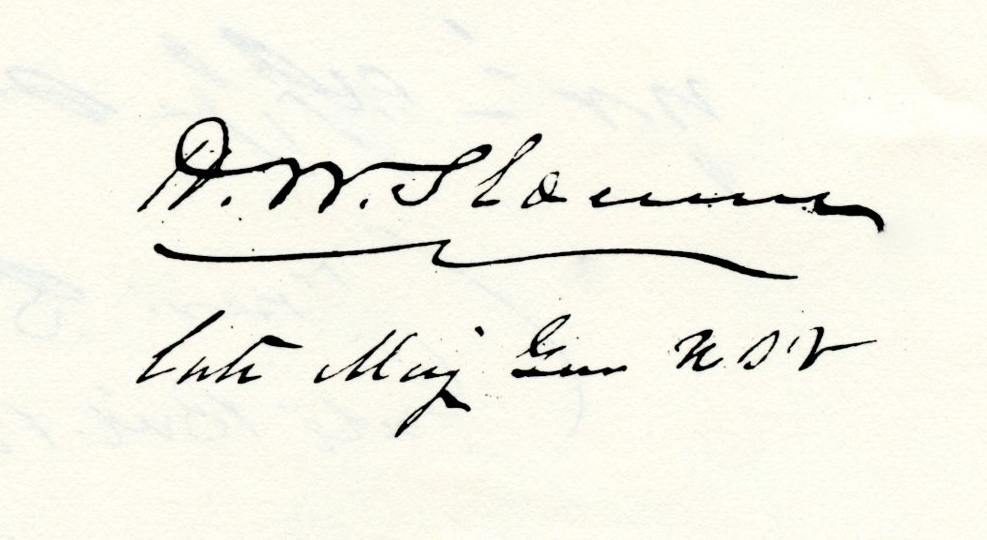 H. W. Slocum
Late Maj Gen U S V